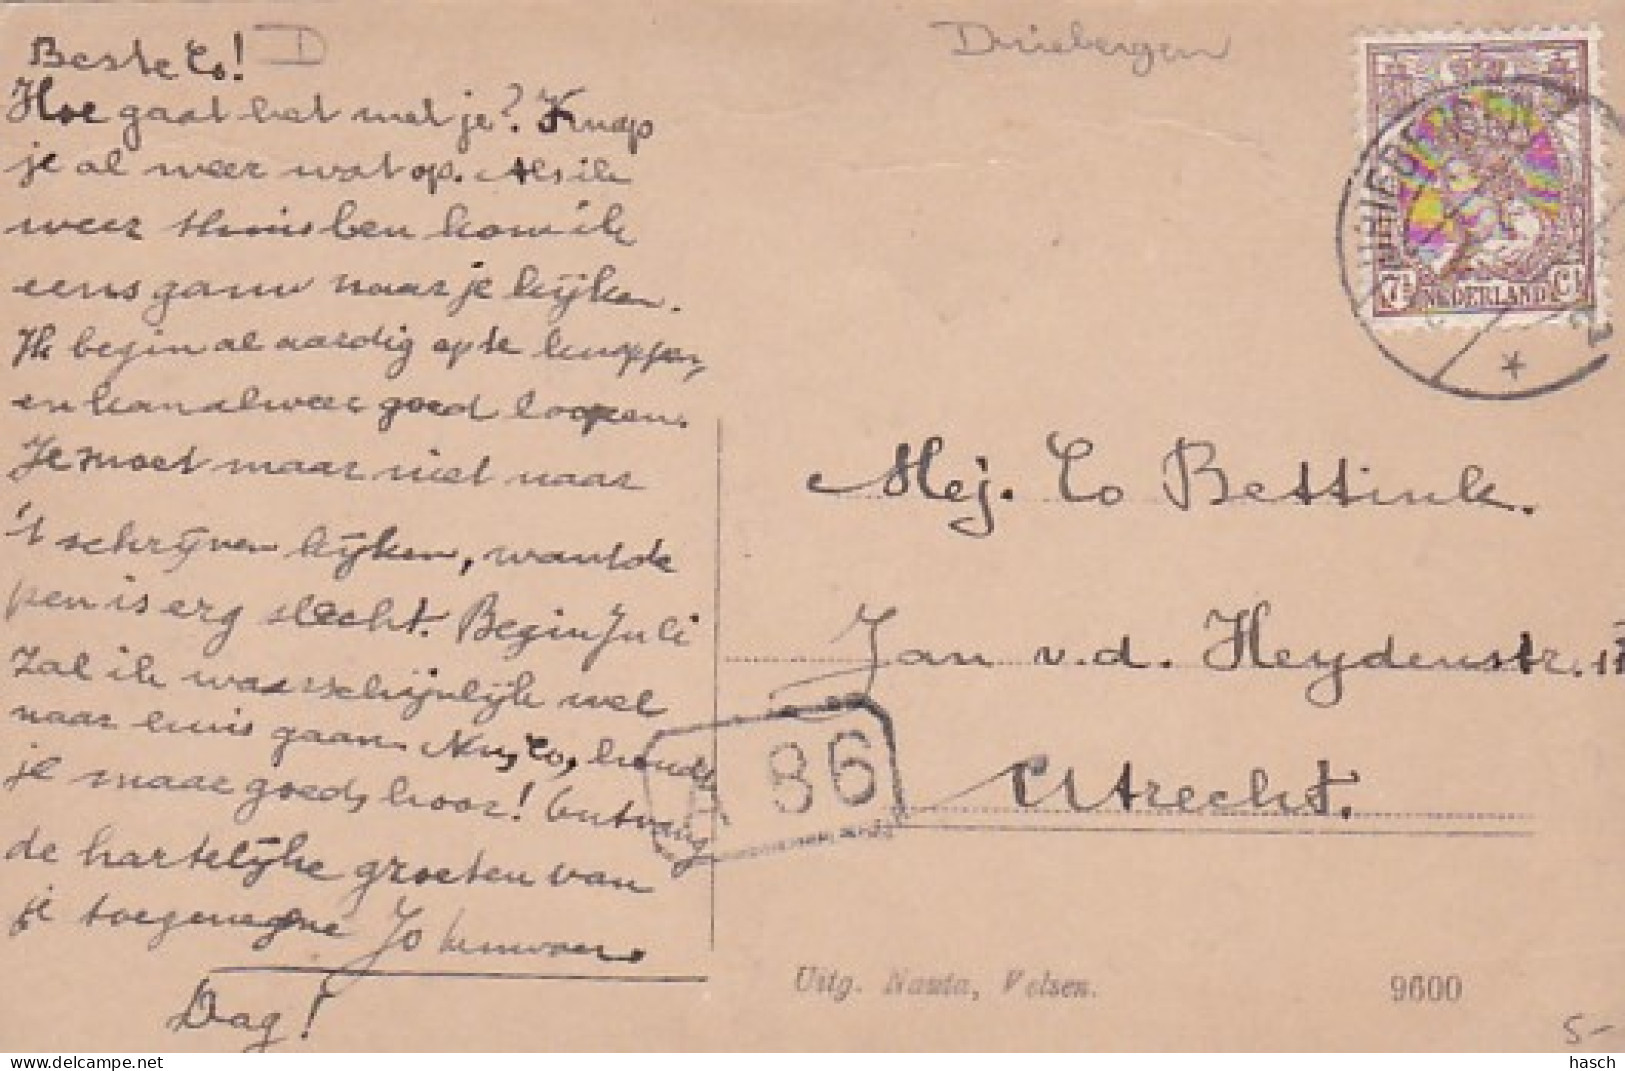 Beste Co! D
Hoe gaat het met je? Knap
je al weer wat op. Als ik
weer thuis ben kom ik
eens gauw naar je kijken.
Ik begin al aardig op te knappen,
en kan al weer goed loopen.
Je moet maar niet naar
't schrijven kijken, want de
pen is erg slecht. Begin Juli
zal ik waarschijnlijk wel
naar huis gaan. Nu, Co, houdt
je maar goed, hoor! Ontvang
de hartelijke groeten van
je toegenegene Jo
Dag!
Driebergen
DRIEBERGEN
7½ NEDERLAND Ct
Mej. Co Bettink.
Jan v.d. Heydenstr. 11
Utrecht.
86
Uitg. Nauta, Velsen.
9600
5-
hasch